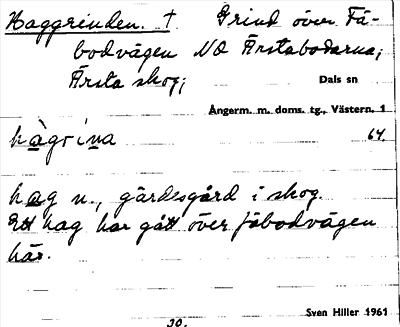 Haggrinden. † Grind över Fä-
bodvägen NO Ärstabodarna;
Ärsta skog; Dals sn
Ångerm. m. doms. tg., Västern. 1
hàgrina 64.
hag n., gärdesgård i skog.
Ett hag har gått över fäbodvägen
här.
Sven Hiller 1961
30.